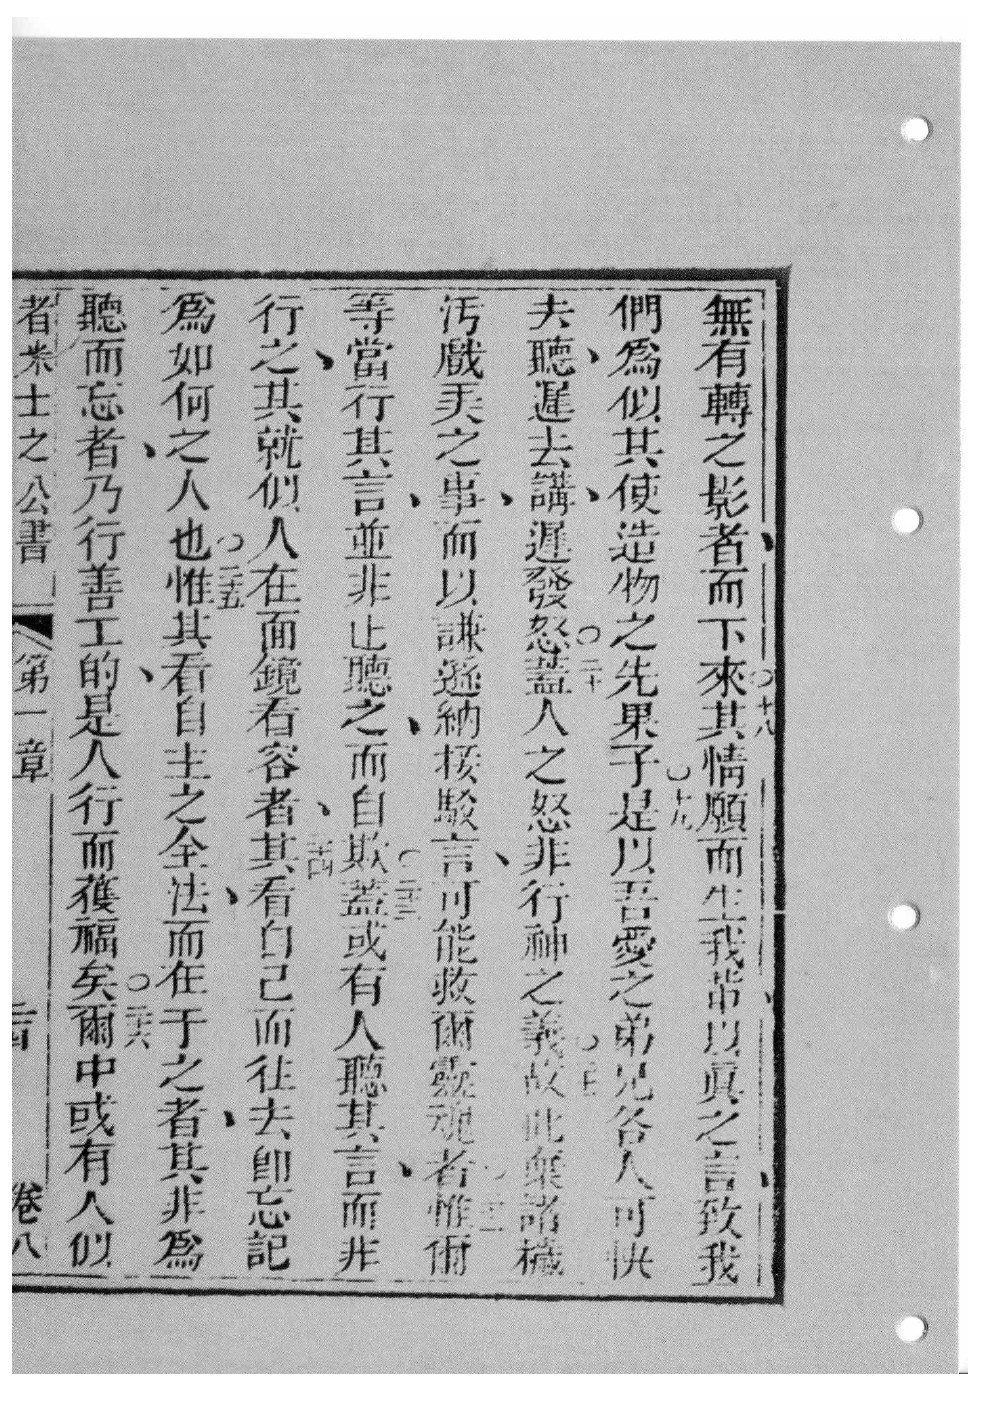 無有轉之影者、而下來○十八其情願而生我們、以眞之言、致我
們爲似其使造物之先果子○十九是以吾愛之弟兄各人可快
去聽、遲去講、遲發怒○二十蓋人之怒非行神之義○二十一故此棄諸穢
汚戲耍之事、而以謙遜納接駁言、可能救爾靈魂者○二十二惟爾
等當行其言、並非止聽之、而自欺○二十三蓋或有人聽其言、而非
行之、其就似人在面鏡看容者、二十四其看自己而徃去卽忘記
爲如何之人也○二十五惟其看自主之全法、而在于之者、其非爲
聽而忘者、乃行善工的、是人行而獲福矣○二十六爾中或有人似
者米士之公書 第一章 卷八